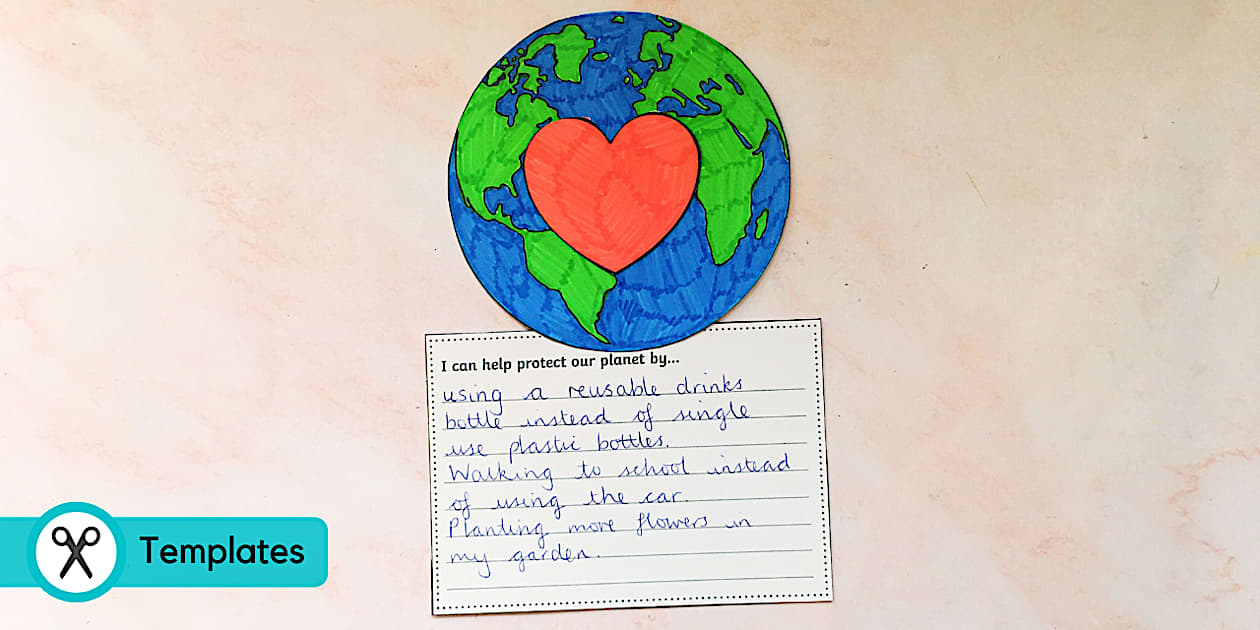 I can help protect our planet by...
using a reusable drinks
bottle instead of single
use plastic bottles.
Walking to school instead
of using the car.
Planting more flowers in
my garden.
Templates